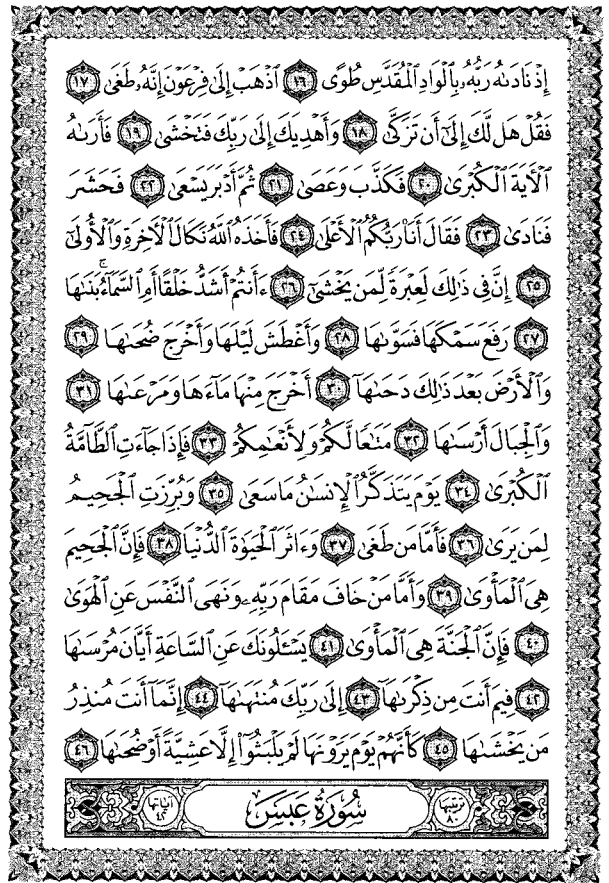 إِذْ نَادَىٰهُ رَبُّهُۥ بِٱلْوَادِ ٱلْمُقَدَّسِ طُوًى ١٦ ٱذْهَبْ إِلَىٰ فِرْعَوْنَ إِنَّهُۥ طَغَىٰ ١٧
فَقُلْ هَل لَّكَ إِلَىٰٓ أَن تَزَكَّىٰ ١٨ وَأَهْدِيَكَ إِلَىٰ رَبِّكَ فَتَخْشَىٰ ١٩ فَأَرَىٰهُ
ٱلْـَٔايَةَ ٱلْكُبْرَىٰ ٢٠ فَكَذَّبَ وَعَصَىٰ ٢١ ثُمَّ أَدْبَرَ يَسْعَىٰ ٢٢ فَحَشَرَ
فَنَادَىٰ ٢٣ فَقَالَ أَنَا۠ رَبُّكُمُ ٱلْأَعْلَىٰ ٢٤ فَأَخَذَهُ ٱللَّهُ نَكَالَ ٱلْـَٔاخِرَةِ وَٱلْأُولَىٰٓ
٢٥ إِنَّ فِى ذَٰلِكَ لَعِبْرَةً لِّمَن يَخْشَىٰٓ ٢٦ ءَأَنتُمْ أَشَدُّ خَلْقًا أَمِ ٱلسَّمَآءُ ۚ بَنَىٰهَا
٢٧ رَفَعَ سَمْكَهَا فَسَوَّىٰهَا ٢٨ وَأَغْطَشَ لَيْلَهَا وَأَخْرَجَ ضُحَىٰهَا ٢٩
وَٱلْأَرْضَ بَعْدَ ذَٰلِكَ دَحَىٰهَآ ٣٠ أَخْرَجَ مِنْهَا مَآءَهَا وَمَرْعَىٰهَا ٣١
وَٱلْجِبَالَ أَرْسَىٰهَا ٣٢ مَتَـٰعًا لَّكُمْ وَلِأَنْعَـٰمِكُمْ ٣٣ فَإِذَا جَآءَتِ ٱلطَّآمَّةُ
ٱلْكُبْرَىٰ ٣٤ يَوْمَ يَتَذَكَّرُ ٱلْإِنسَـٰنُ مَا سَعَىٰ ٣٥ وَبُرِّزَتِ ٱلْجَحِيمُ
لِمَن يَرَىٰ ٣٦ فَأَمَّا مَن طَغَىٰ ٣٧ وَءَاثَرَ ٱلْحَيَوٰةَ ٱلدُّنْيَا ٣٨ فَإِنَّ ٱلْجَحِيمَ
هِىَ ٱلْمَأْوَىٰ ٣٩ وَأَمَّا مَنْ خَافَ مَقَامَ رَبِّهِۦ وَنَهَى ٱلنَّفْسَ عَنِ ٱلْهَوَىٰ
٤٠ فَإِنَّ ٱلْجَنَّةَ هِىَ ٱلْمَأْوَىٰ ٤١ يَسْـَٔلُونَكَ عَنِ ٱلسَّاعَةِ أَيَّانَ مُرْسَىٰهَا
٤٢ فِيمَ أَنتَ مِن ذِكْرَىٰهَآ ٤٣ إِلَىٰ رَبِّكَ مُنتَهَىٰهَآ ٤٤ إِنَّمَآ أَنتَ مُنذِرُ
مَن يَخْشَىٰهَا ٤٥ كَأَنَّهُمْ يَوْمَ يَرَوْنَهَا لَمْ يَلْبَثُوٓا۟ إِلَّا عَشِيَّةً أَوْ ضُحَىٰهَا ٤٦
ترتيبها ٨٠ سُورَةُ عَبَسَ آياتها ٤٢